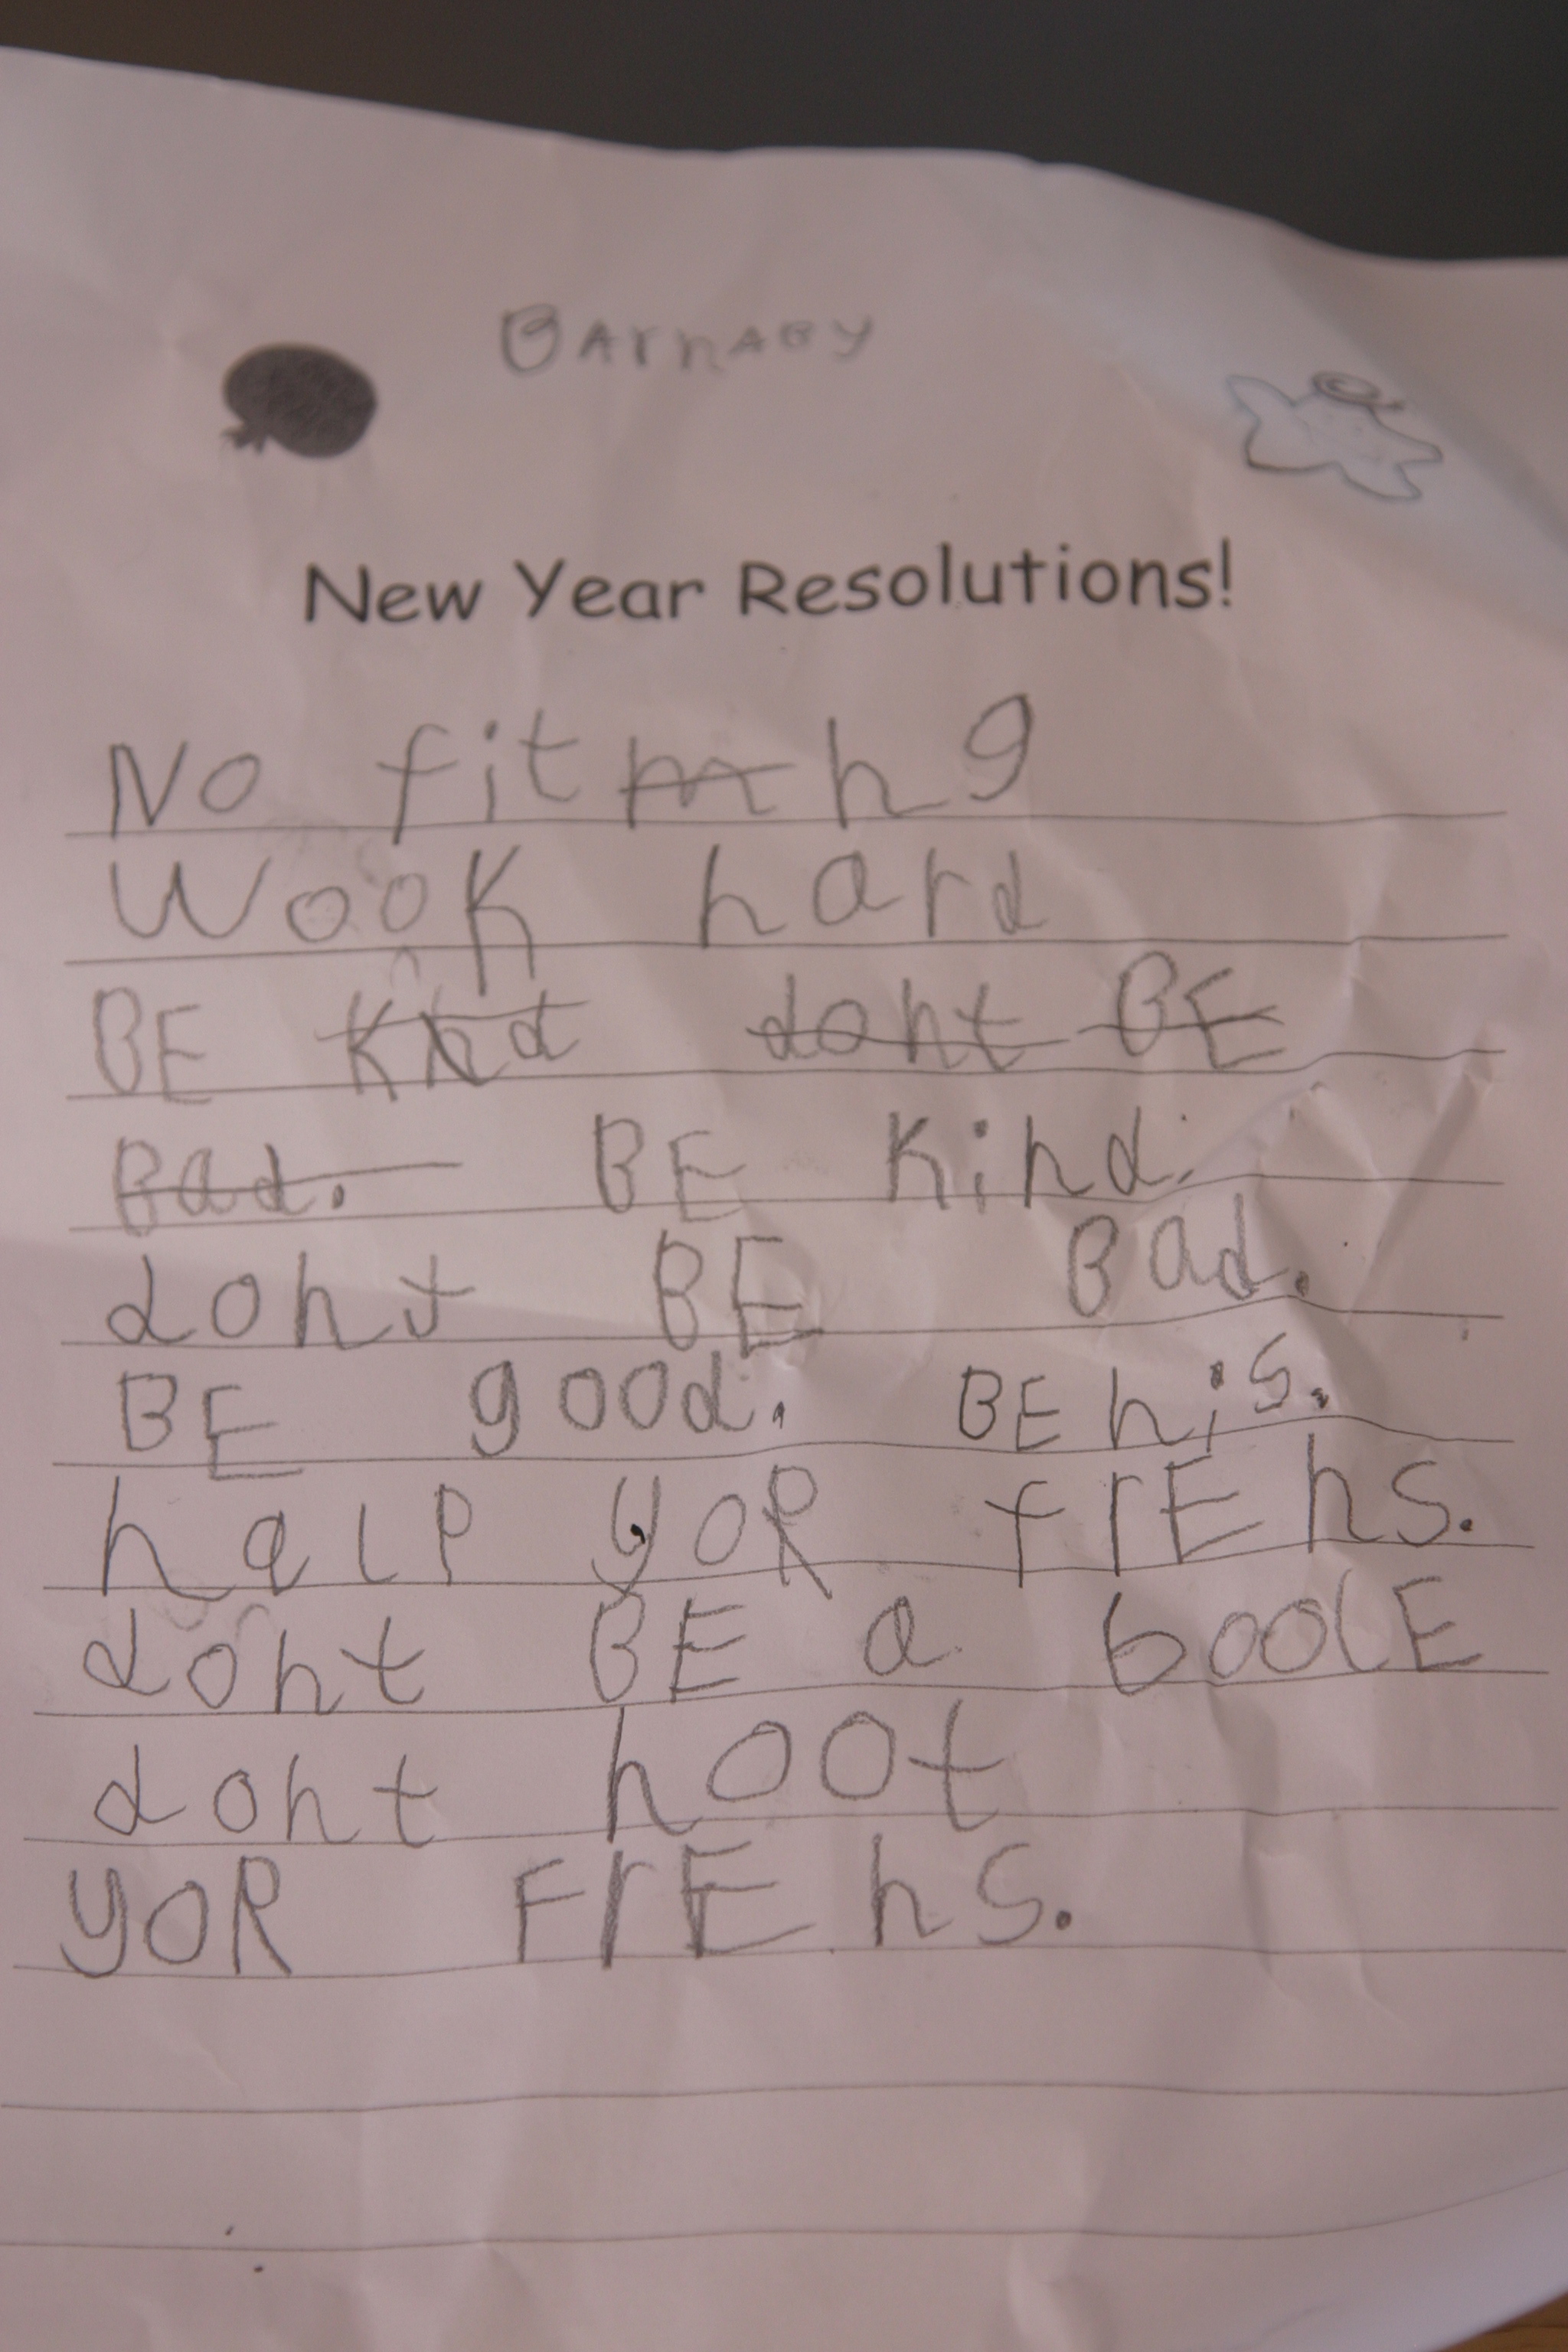 Barnaby
New Year Resolutions!
No fit m ng
Wook hard
BE Knd dont BE
Bad. BE Kind.
dont BE Bad.
BE good. BE nis.
halp yoR frEns.
dont BE a boolE
dont hoot
yoR FrEns.